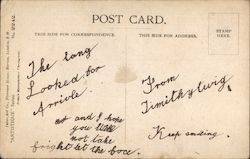 POST CARD.
THIS SIDE FOR CORRESPONDENCE.
THIS SIDE FOR ADDRESS.
STAMP
HERE.
The long
Looked for
Arrivle.
and I hope
you Will
not take
fright at the face.
From
Timithy
Keep smiling.